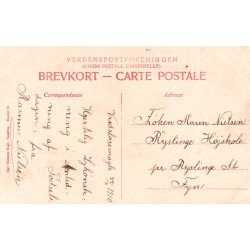 VERDENSPOSTFORENINGEN
(UNION POSTALE UNIVERSELLE)
BREVKORT – CARTE POSTALE
Correspondance
Adresse
Hjertelig Lykønsk-
ning i Anled-
ning af Fødsels-
dagen, fra
Rasmus Nielsen
Frøken Maren Nielsen
Ryslinge Højskole
pr Ryslinge St
Fyn